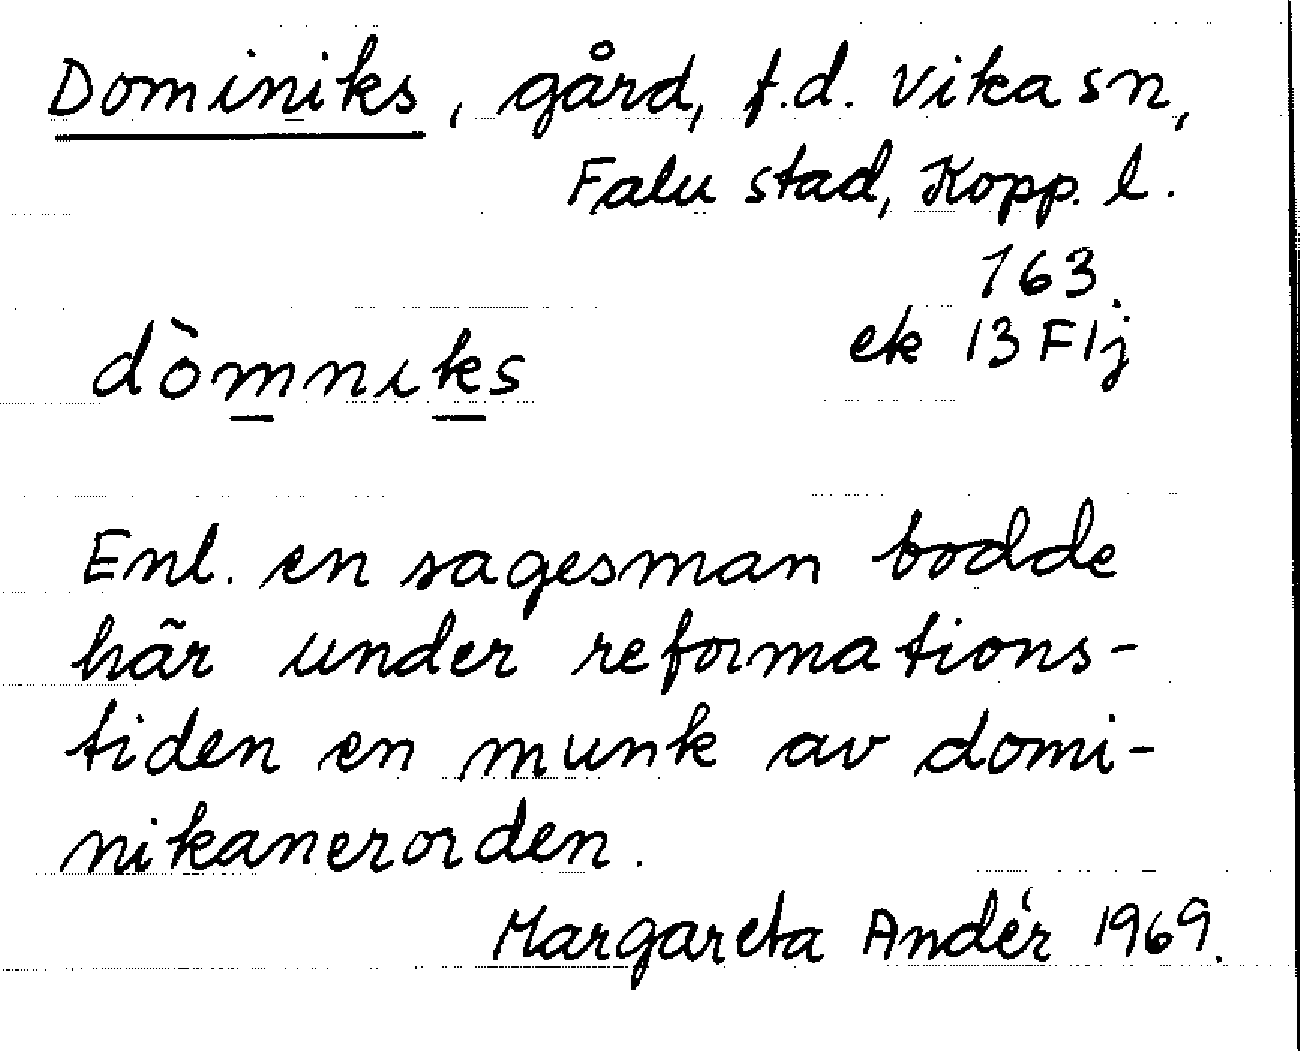 Dominiks, gård, f.d. Vika sn,
Falu stad, Kopp. l.
163.
ek 13 F1j
dòmnıks
Enl. en sagesman bodde
här under reformations-
tiden en munk av domi-
nikanerorden.
Margareta Andér 1969.